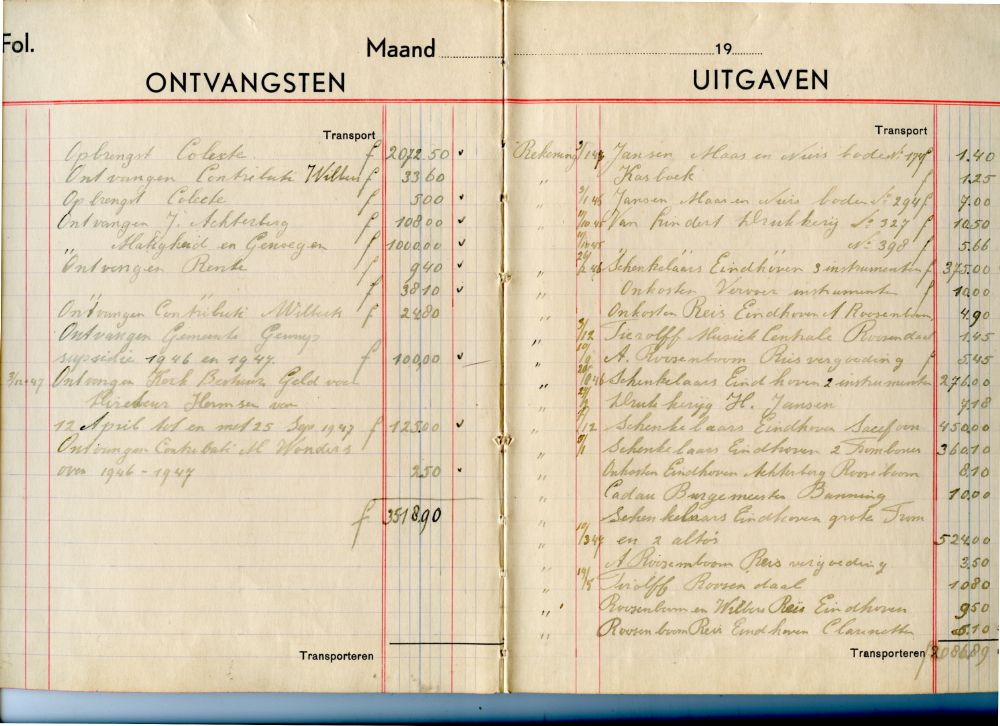 Fol.
Maand
ONTVANGSTEN
Transport
Opbrengst Colecte f 2072.50
Ontvangen Contributi Wilbers f 33.60
Opbrengst Colecte f 500
Ontvangen J. Achterberg f 108.00
" Matigheid en Genoegen f 1000.00
Ontvangen Rente f 9.40
" " f 38.10
Ontvangen Contributi f 24.80
Ontvangen Gemeente Gennep
supsidie 1946 en 1947. f 100,00
47 Ontvangen Kerk Bestuur Geld voor
Direkteur Hermsen van
12 April tot en met 25 Sep 1947 f 125.00
Ontvangen Contrebuti M Wonders
over 1946 - 1947 2.50
f 3518.90
Transporteren
19
UITGAVEN
Transport
Rekening Jansen, Maas en Niers bode No 174 f 1.40
" Kasboek f 1.25
" Jansen Maas en Niers bode No 294 f 7.00
" Van Lindert Drukkerij No 327 f 10.50
" No 398 f 5.66
" Schenkelaars Eindhoven 3 instrumenten f 375.00
" Onkosten Vervoer instrumenten f 10.00
" Onkosten Reis Eindhoven A Roosenboom 4.90
" 3/12 Tierolff Musiek Centrale Roosendaal 1.45
" A. Roosenboom Reisvergoeding f 5.45
" Schenkelaars Eindhoven 2 instrumenten 276.00
" Drukkerijj H. Jansen 7.18
" Schenkelaars Eindhoven Sacsfoon 450.00
" Schenkelaars Eindhoven 2 Trombones 360.10
" Onkosten Eindhoven Achterberg Rooseboom 8.10
" Cadau Burgemeester Banning 10.00
Schenkelaars Eindhoven grote Trom
" en 2 alto's 524.00
" A Roosemboom Reis vergoeding 3.50
" 14/5 Tierolff Roosendaal 10.80
" Roosenboom en Wilbers Reis Eindhoven 9.50
" Roosenboom Reis Eindhoven Clarinetten 5.10
Transporteren f 2086.89